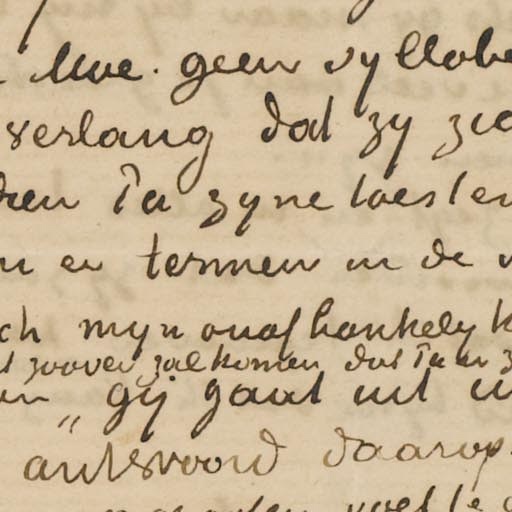 Mve. geen syllabe
verlang dat zy zic
dien Pa zyne toesten
n er termen in de v
ch myn onafhankelyk
t zoover zal komen dat Pa er z
en „gij gaat uit u
antwoord daarop.